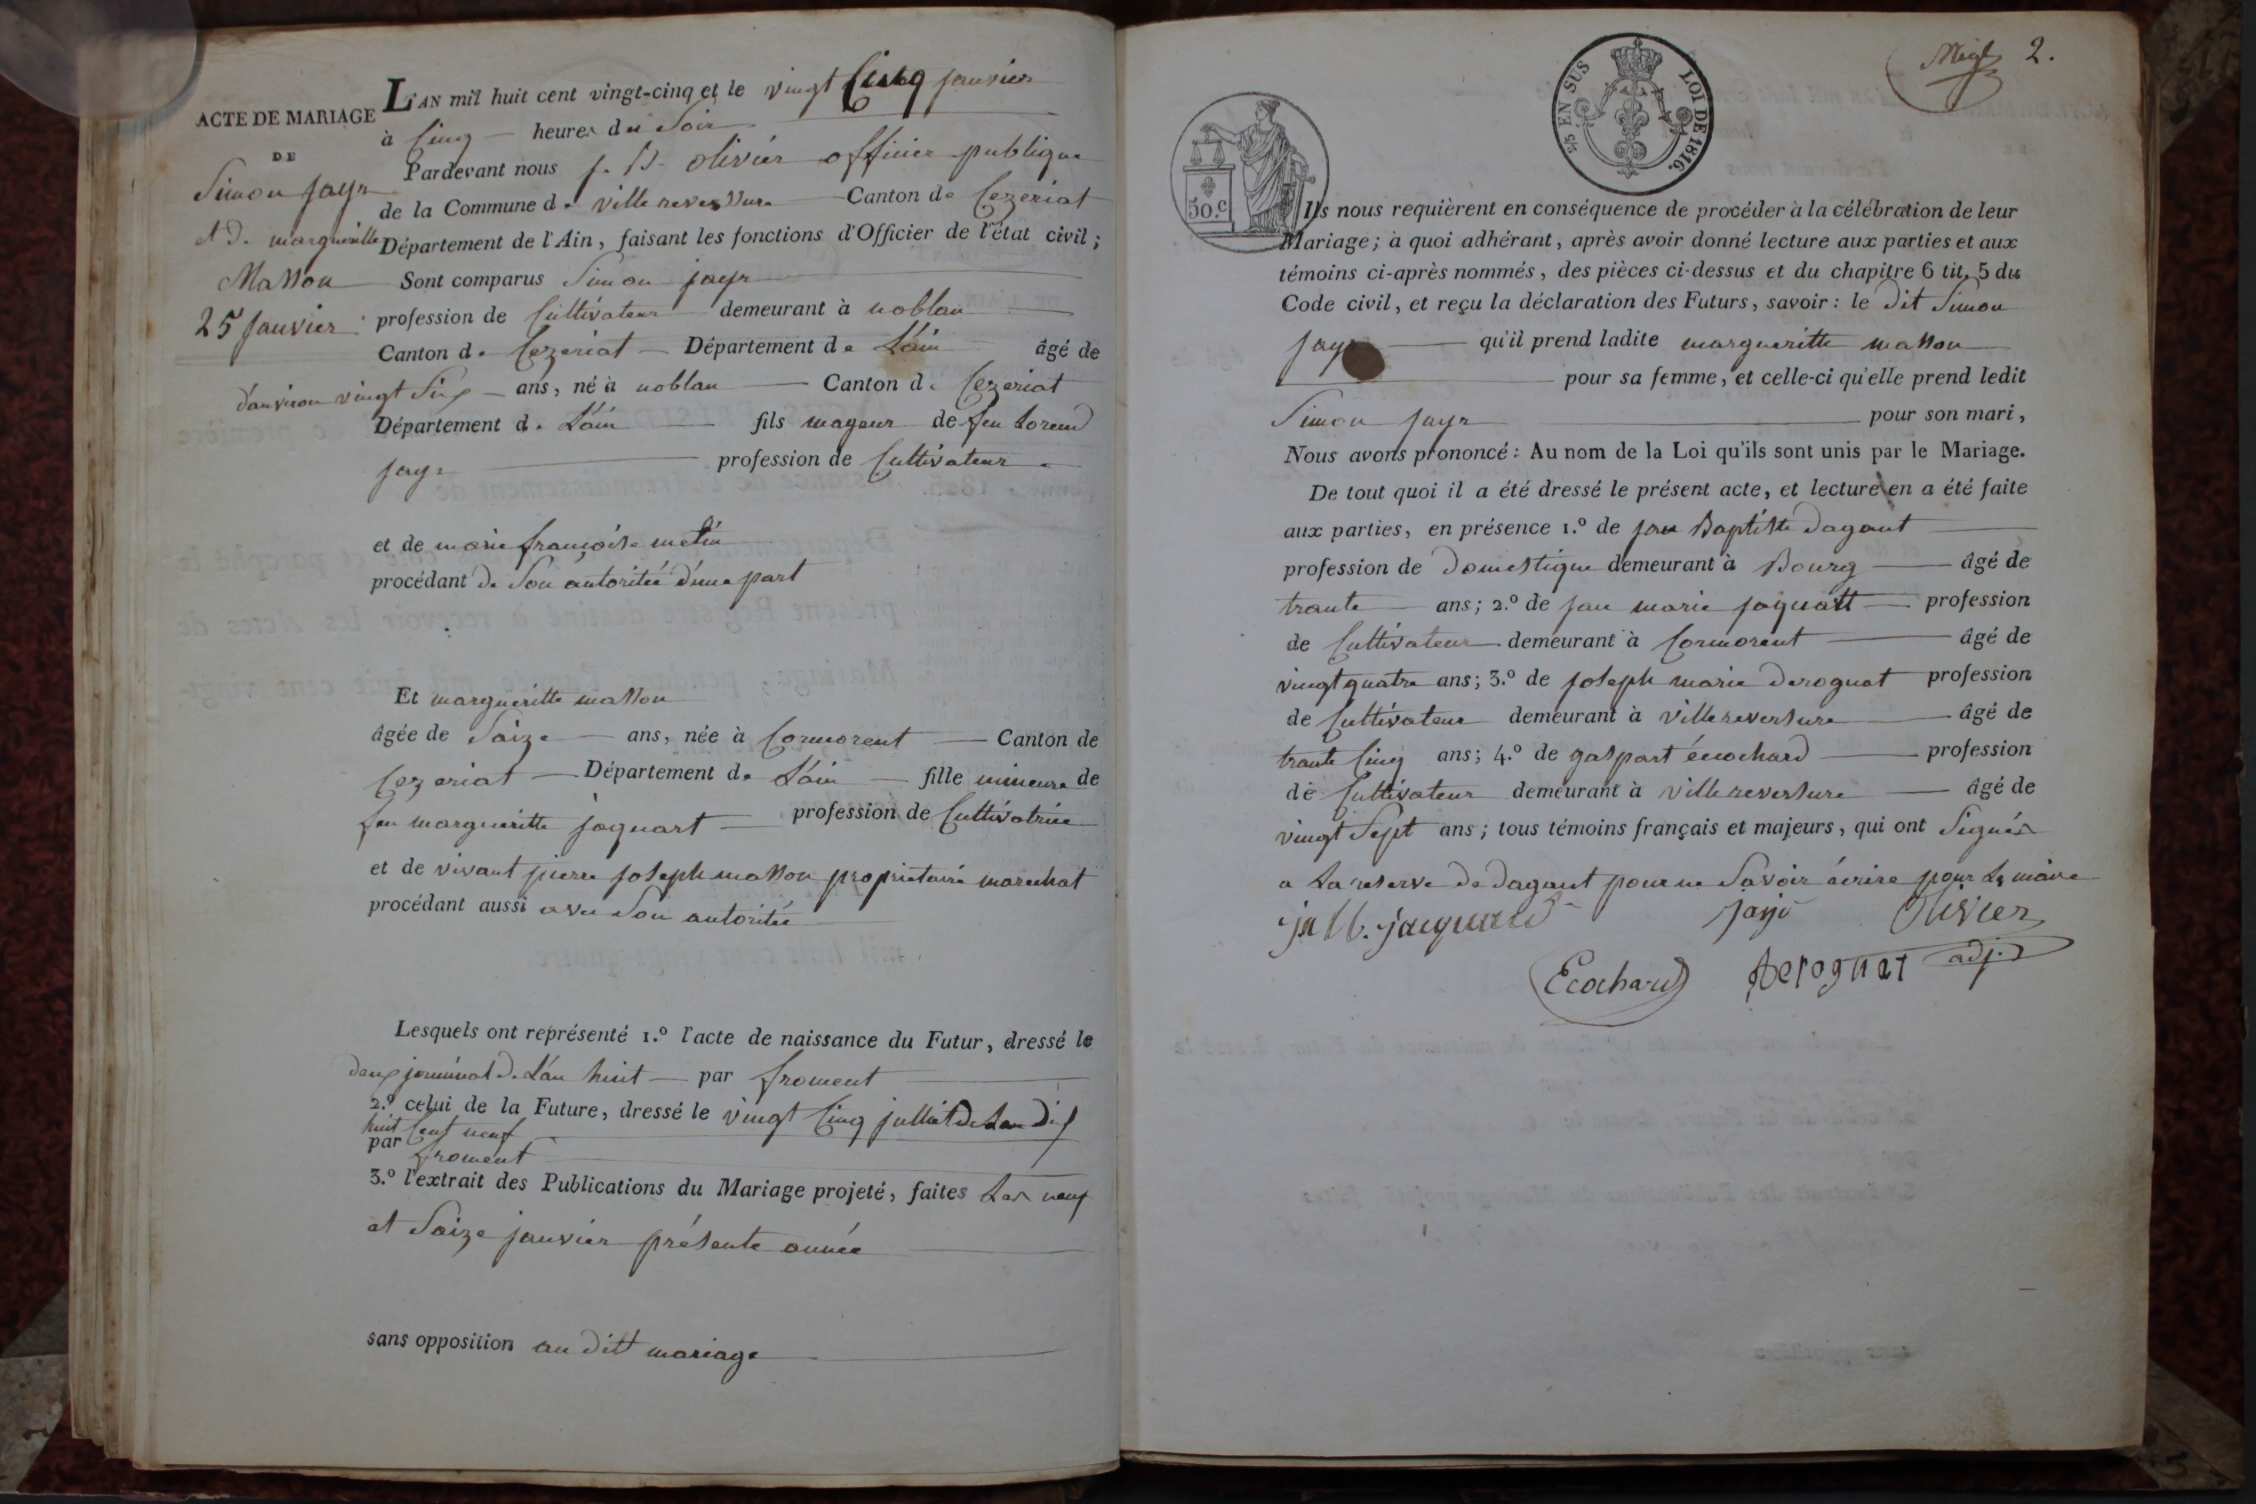 ACTE DE MARIAGE
DE
Simon jayr
et de margueritte
Masson
25 janvier
L'AN mil huit cent vingt-cinq et le vingt Cinq janvier
à Cinq heures du Soir
Pardevant nous j. B. olivier officier publique
de la Commune de villereversure Canton de Cezeriat
Département de l'Ain, faisant les fonctions d'Officier de l'état civil;
Sont comparus Simon jayr
profession de Cultivateur demeurant à noblan
Canton de Cezeriat Département de L'ain âgé de
d'anviron vingt Six ans, né à noblan Canton de Cezeriat
Département de L'ain fils mageur de feu Lorend
jayr profession de Cultivateur
et de marie françoise metin
procédant de Son autoritéé d'une part
Et margueritte masson
âgée de Saize ans, née à Cormorent Canton de
Cezeriat Département de L'ain fille mineure de
feu margueritte jaquart profession de Cultivatrice
et de vivant pierre joseph masson proprietaire marechat
procédant aussi avec Son autoritée
Lesquels ont représenté 1.º l'acte de naissance du Futur, dressé le
deux jerminal de L'an huit par froment
2.º celui de la Future, dressé le vingt Cinq julliet de Lan dix
huit Cent neuf
par froment
3.º l'extrait des Publications du Mariage projeté, faites Les neuf
et Saize janvier présente année
sans opposition au ditt mariage
2.
5/5 EN SUS
LOI DE 1816.
50.c
Ils nous requièrent en conséquence de procéder à la célébration de leur
Mariage; à quoi adhérant, après avoir donné lecture aux parties et aux
témoins ci-après nommés, des pièces ci-dessus et du chapitre 6 tit. 5 du
Code civil, et reçu la déclaration des Futurs, savoir: le dit Simon
jayr qu'il prend ladite margueritte masson
pour sa femme, et celle-ci qu'elle prend ledit
Simon jayr pour son mari,
Nous avons prononcé: Au nom de la Loi qu'ils sont unis par le Mariage.
De tout quoi il a été dressé le présent acte, et lecture en a été faite
aux parties, en présence 1.º de jan Baptiste dagaut
profession de domestique demeurant à Bourg âgé de
trante ans; 2.º de jan marie jaquatt profession
de Cultivateur demeurant à Cormorent âgé de
vingt quatre ans; 3.º de joseph marie derognat profession
de Cultivateur demeurant à villereversure âgé de
trante Cinq ans; 4.º de gaspart écochard profession
de Cultivateur demeurant à villereversure âgé de
vingt Sept ans; tous témoins français et majeurs, qui ont Signés
a La reserve de dagaut pour ne Savoir écrire pour Le maire
jacquard jayr Olivier
Ecochard derognat adj.